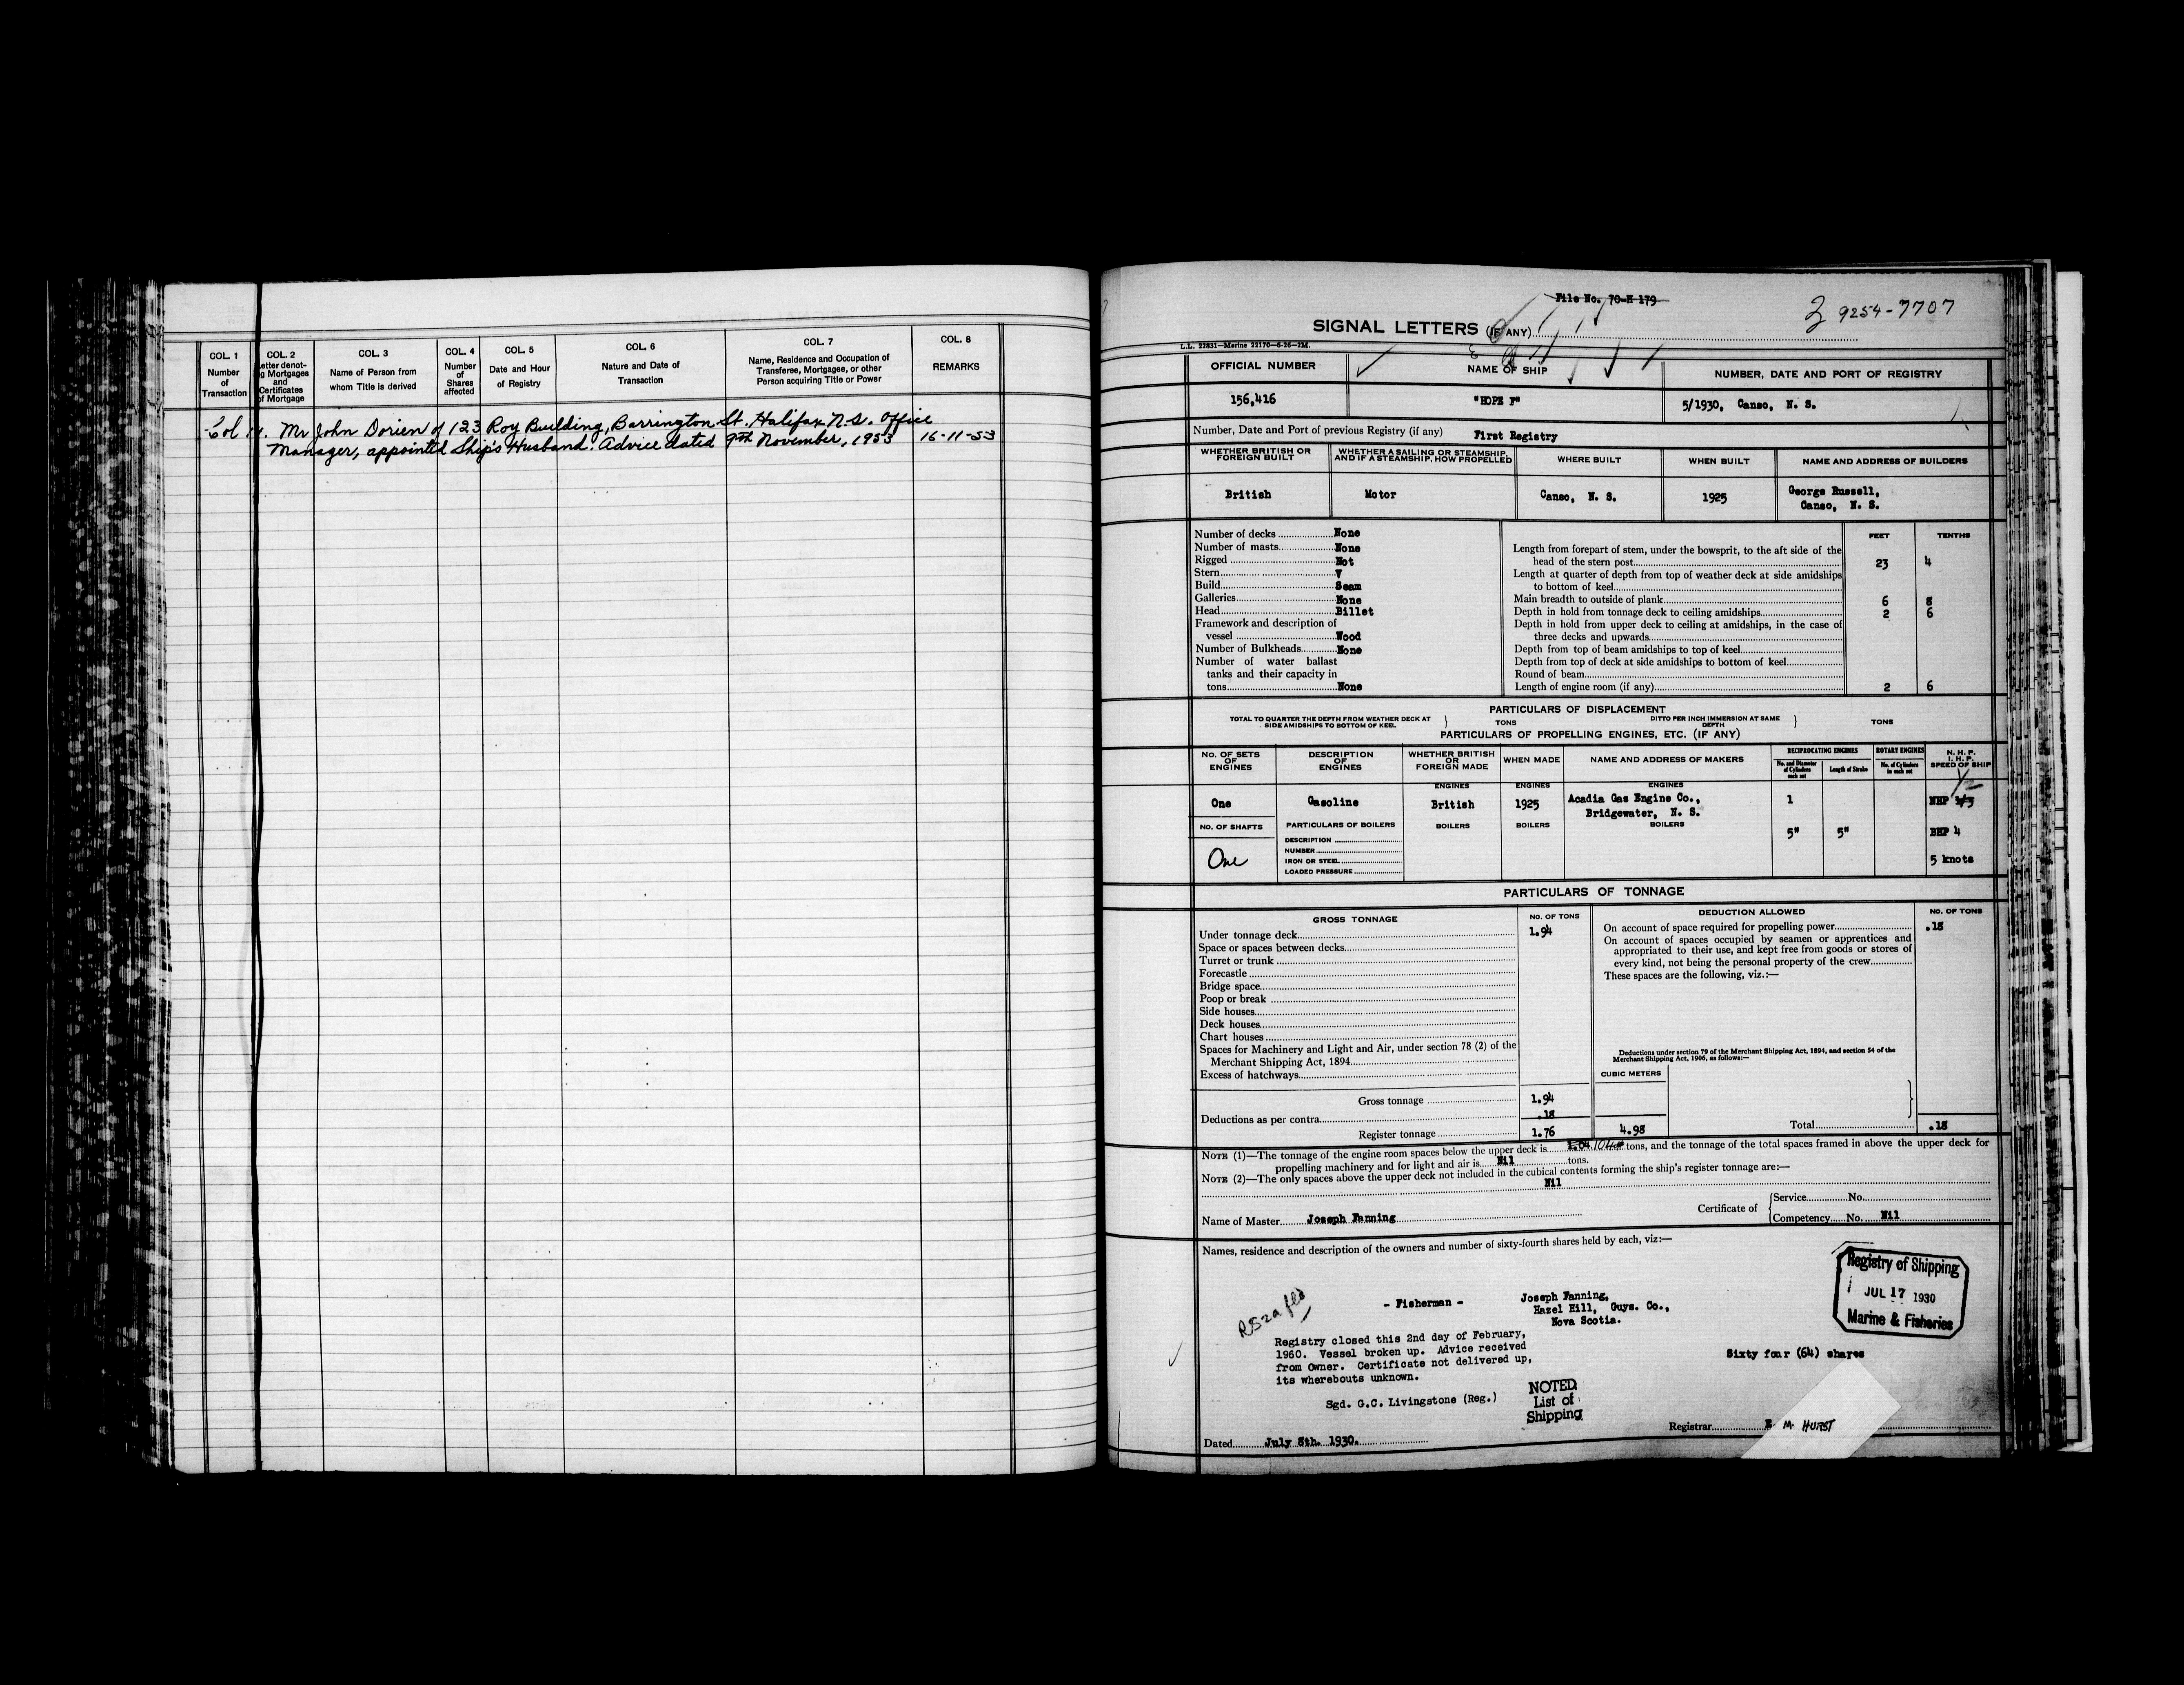 COL. 1
Number
of
Transaction
COL. 2
Letter denot-
ing Mortgages
and
Certificates
of Mortgage
COL. 3
Name of Person from
whom Title is derived
COL. 4
Number
of
Shares
affected
COL. 5
Date and Hour
of Registry
COL. 6
Nature and Date of
Transaction
COL. 7
Name, Residence and Occupation of
Transferee, Mortgagee, or other
Person acquiring Title or Power
COL. 8
REMARKS
Mr John Dorien of 123 Roy Building, Barrington St. Halifax N.S. Office
Manager, appointed Ship's Husband. Advice dated 9th November, 1953 16-11-53
File No. 70-H-179
9254-7707
SIGNAL LETTERS (IF ANY)
L.L. 22831—Marine 22170—6-26—2M.
OFFICIAL NUMBER
NAME OF SHIP
NUMBER, DATE AND PORT OF REGISTRY
156,416
"HOPE F"
5/1930, Canso, N. S.
Number, Date and Port of previous Registry (if any) First Registry
WHETHER BRITISH OR
FOREIGN BUILT
WHETHER A SAILING OR STEAMSHIP,
AND IF A STEAMSHIP, HOW PROPELLED
WHERE BUILT
WHEN BUILT
NAME AND ADDRESS OF BUILDERS
British
Motor
Canso, N. S.
1925
George Russell,
Canso, N. S.
Number of decks None
Number of masts None
Rigged Not
Stern V
Build Seam
Galleries None
Head Billet
Framework and description of
vessel Wood
Number of Bulkheads None
Number of water ballast
tanks and their capacity in
tons None
FEET TENTHS
Length from forepart of stem, under the bowsprit, to the aft side of the
head of the stern post 23 4
Length at quarter of depth from top of weather deck at side amidships
to bottom of keel
Main breadth to outside of plank 6 8
Depth in hold from tonnage deck to ceiling amidships 2 6
Depth in hold from upper deck to ceiling at amidships, in the case of
three decks and upwards
Depth from top of beam amidships to top of keel
Depth from top of deck at side amidships to bottom of keel
Round of beam
Length of engine room (if any) 2 6
PARTICULARS OF DISPLACEMENT
TOTAL TO QUARTER THE DEPTH FROM WEATHER DECK AT
SIDE AMIDSHIPS TO BOTTOM OF KEEL
TONS
DITTO PER INCH IMMERSION AT SAME
DEPTH
TONS
PARTICULARS OF PROPELLING ENGINES, ETC. (IF ANY)
NO. OF SETS
OF
ENGINES
DESCRIPTION
OF
ENGINES
WHETHER BRITISH
OR
FOREIGN MADE
WHEN MADE
NAME AND ADDRESS OF MAKERS
RECIPROCATING ENGINES
No. and Diameter
of Cylinders
each set
Length of Stroke
ROTARY ENGINES
No. of Cylinders
in each set
N. H. P.
I. H. P.
SPEED OF SHIP
ENGINES ENGINES ENGINES
One
Gasoline
British
1925
Acadia Gas Engine Co.,
Bridgewater, N. S.
1
NHP
NO. OF SHAFTS
PARTICULARS OF BOILERS
BOILERS BOILERS BOILERS
5" 5"
BHP 4
5 knots
One
DESCRIPTION
NUMBER
IRON OR STEEL
LOADED PRESSURE
PARTICULARS OF TONNAGE
GROSS TONNAGE
NO. OF TONS
DEDUCTION ALLOWED
NO. OF TONS
Under tonnage deck 1.94
Space or spaces between decks
Turret or trunk
Forecastle
Bridge space
Poop or break
Side houses
Deck houses
Chart houses
Spaces for Machinery and Light and Air, under section 78 (2) of the
Merchant Shipping Act, 1894
Excess of hatchways
Gross tonnage 1.94
Deductions as per contra .18
Register tonnage 1.76
On account of space required for propelling power .18
On account of spaces occupied by seamen or apprentices and
appropriated to their use, and kept free from goods or stores of
every kind, not being the personal property of the crew
These spaces are the following, viz.:—
Deductions under section 79 of the Merchant Shipping Act, 1894, and section 54 of the
Merchant Shipping Act, 1906, as follows:—
CUBIC METERS
4.98
Total .18
NOTE (1)—The tonnage of the engine room spaces below the upper deck is tons, and the tonnage of the total spaces framed in above the upper deck for
propelling machinery and for light and air is Nil tons.
NOTE (2)—The only spaces above the upper deck not included in the cubical contents forming the ship's register tonnage are:—
Nil
Name of Master Joseph Fanning
Certificate of
Service No.
Competency No. Nil
Names, residence and description of the owners and number of sixty-fourth shares held by each, viz:—
Registry of Shipping
JUL 17 1930
Marine & Fisheries
- Fisherman -
Joseph Fanning,
Hazel Hill, Guys. Co.,
Nova Scotia.
Registry closed this 2nd day of February,
1960. Vessel broken up. Advice received
from Owner. Certificate not delivered up,
its wherebouts unknown.
Sgd. G.C. Livingstone (Reg.)
Sixty four (64) shares
NOTED
List of
Shipping
Registrar M. HURST
Dated July 8th. 1930.